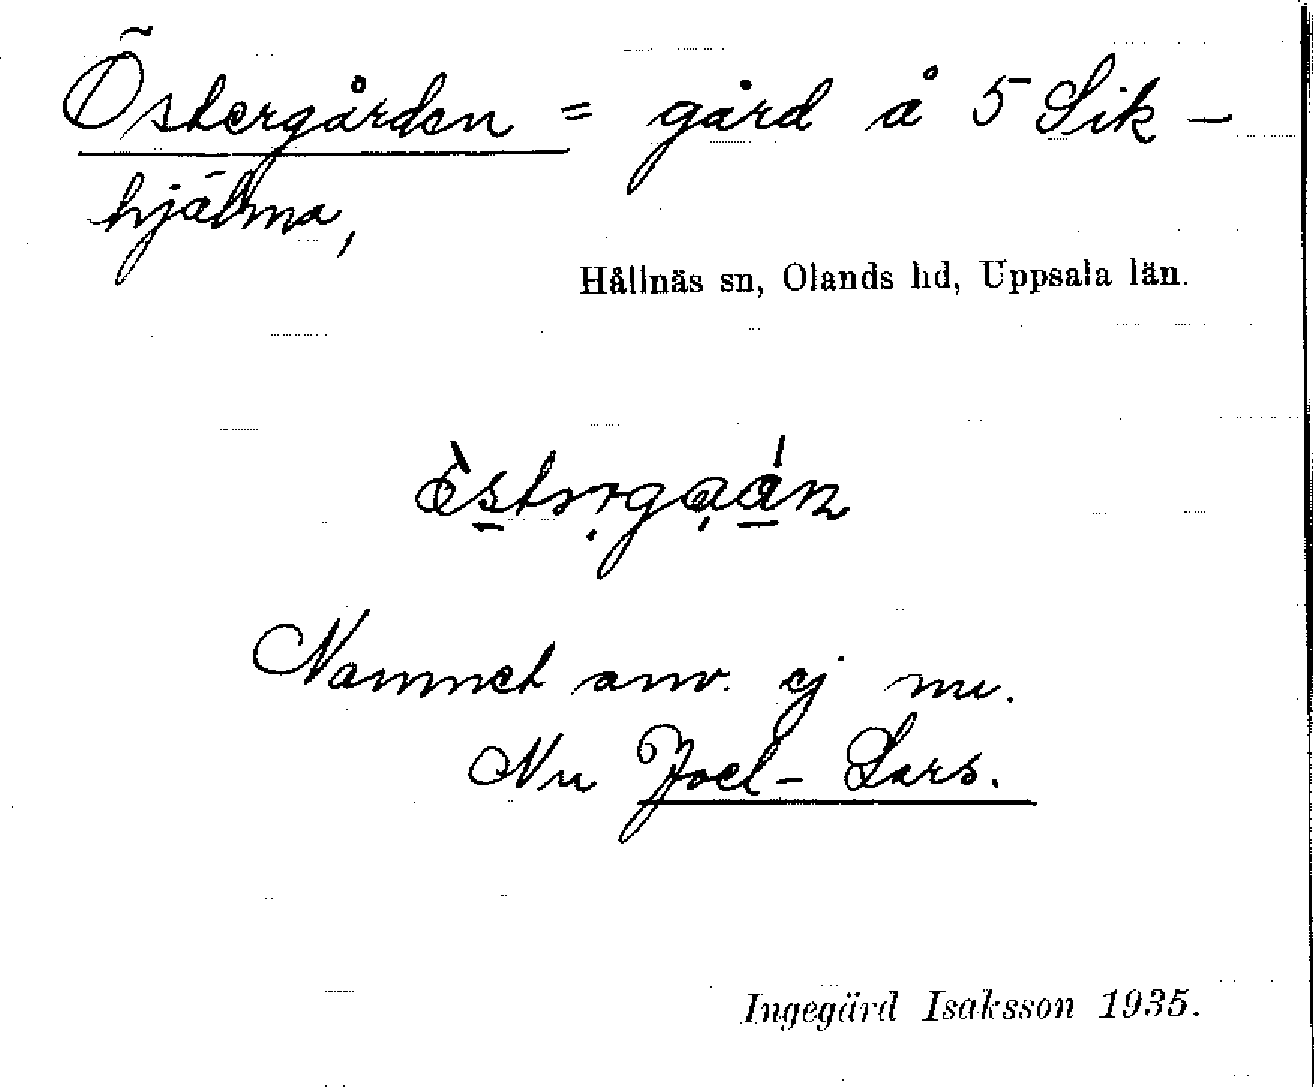 Östergården = gård å 5 Sik-
hjälma,
Hållnäs sn, Olands hd, Uppsala län.
Namnet anv. ej nu.
Nu Joel-Lars.
Ingegärd Isaksson 1935.